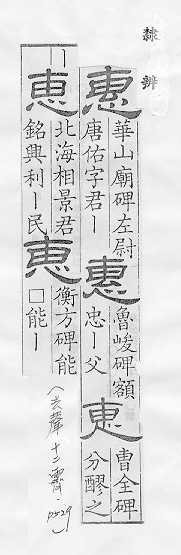 隸辨
惠 華山廟碑左尉
唐佑字君丨
惠 魯峻碑額
忠丨父
惠 曹全碑
分醪之
丨
惠 北海相景君
銘興利丨民
惠 衡方碑能
□能丨
(去聲十二霽.